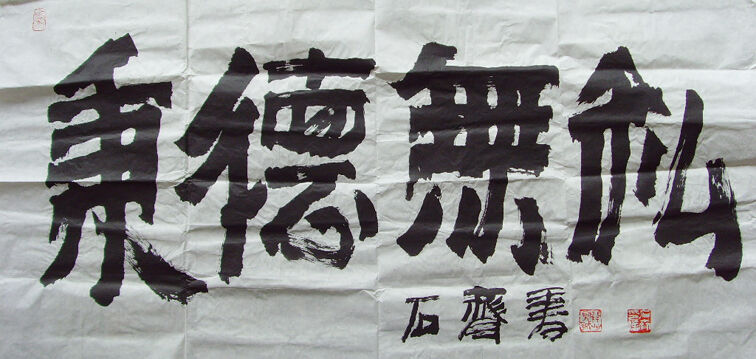 秉德無私
石齊書